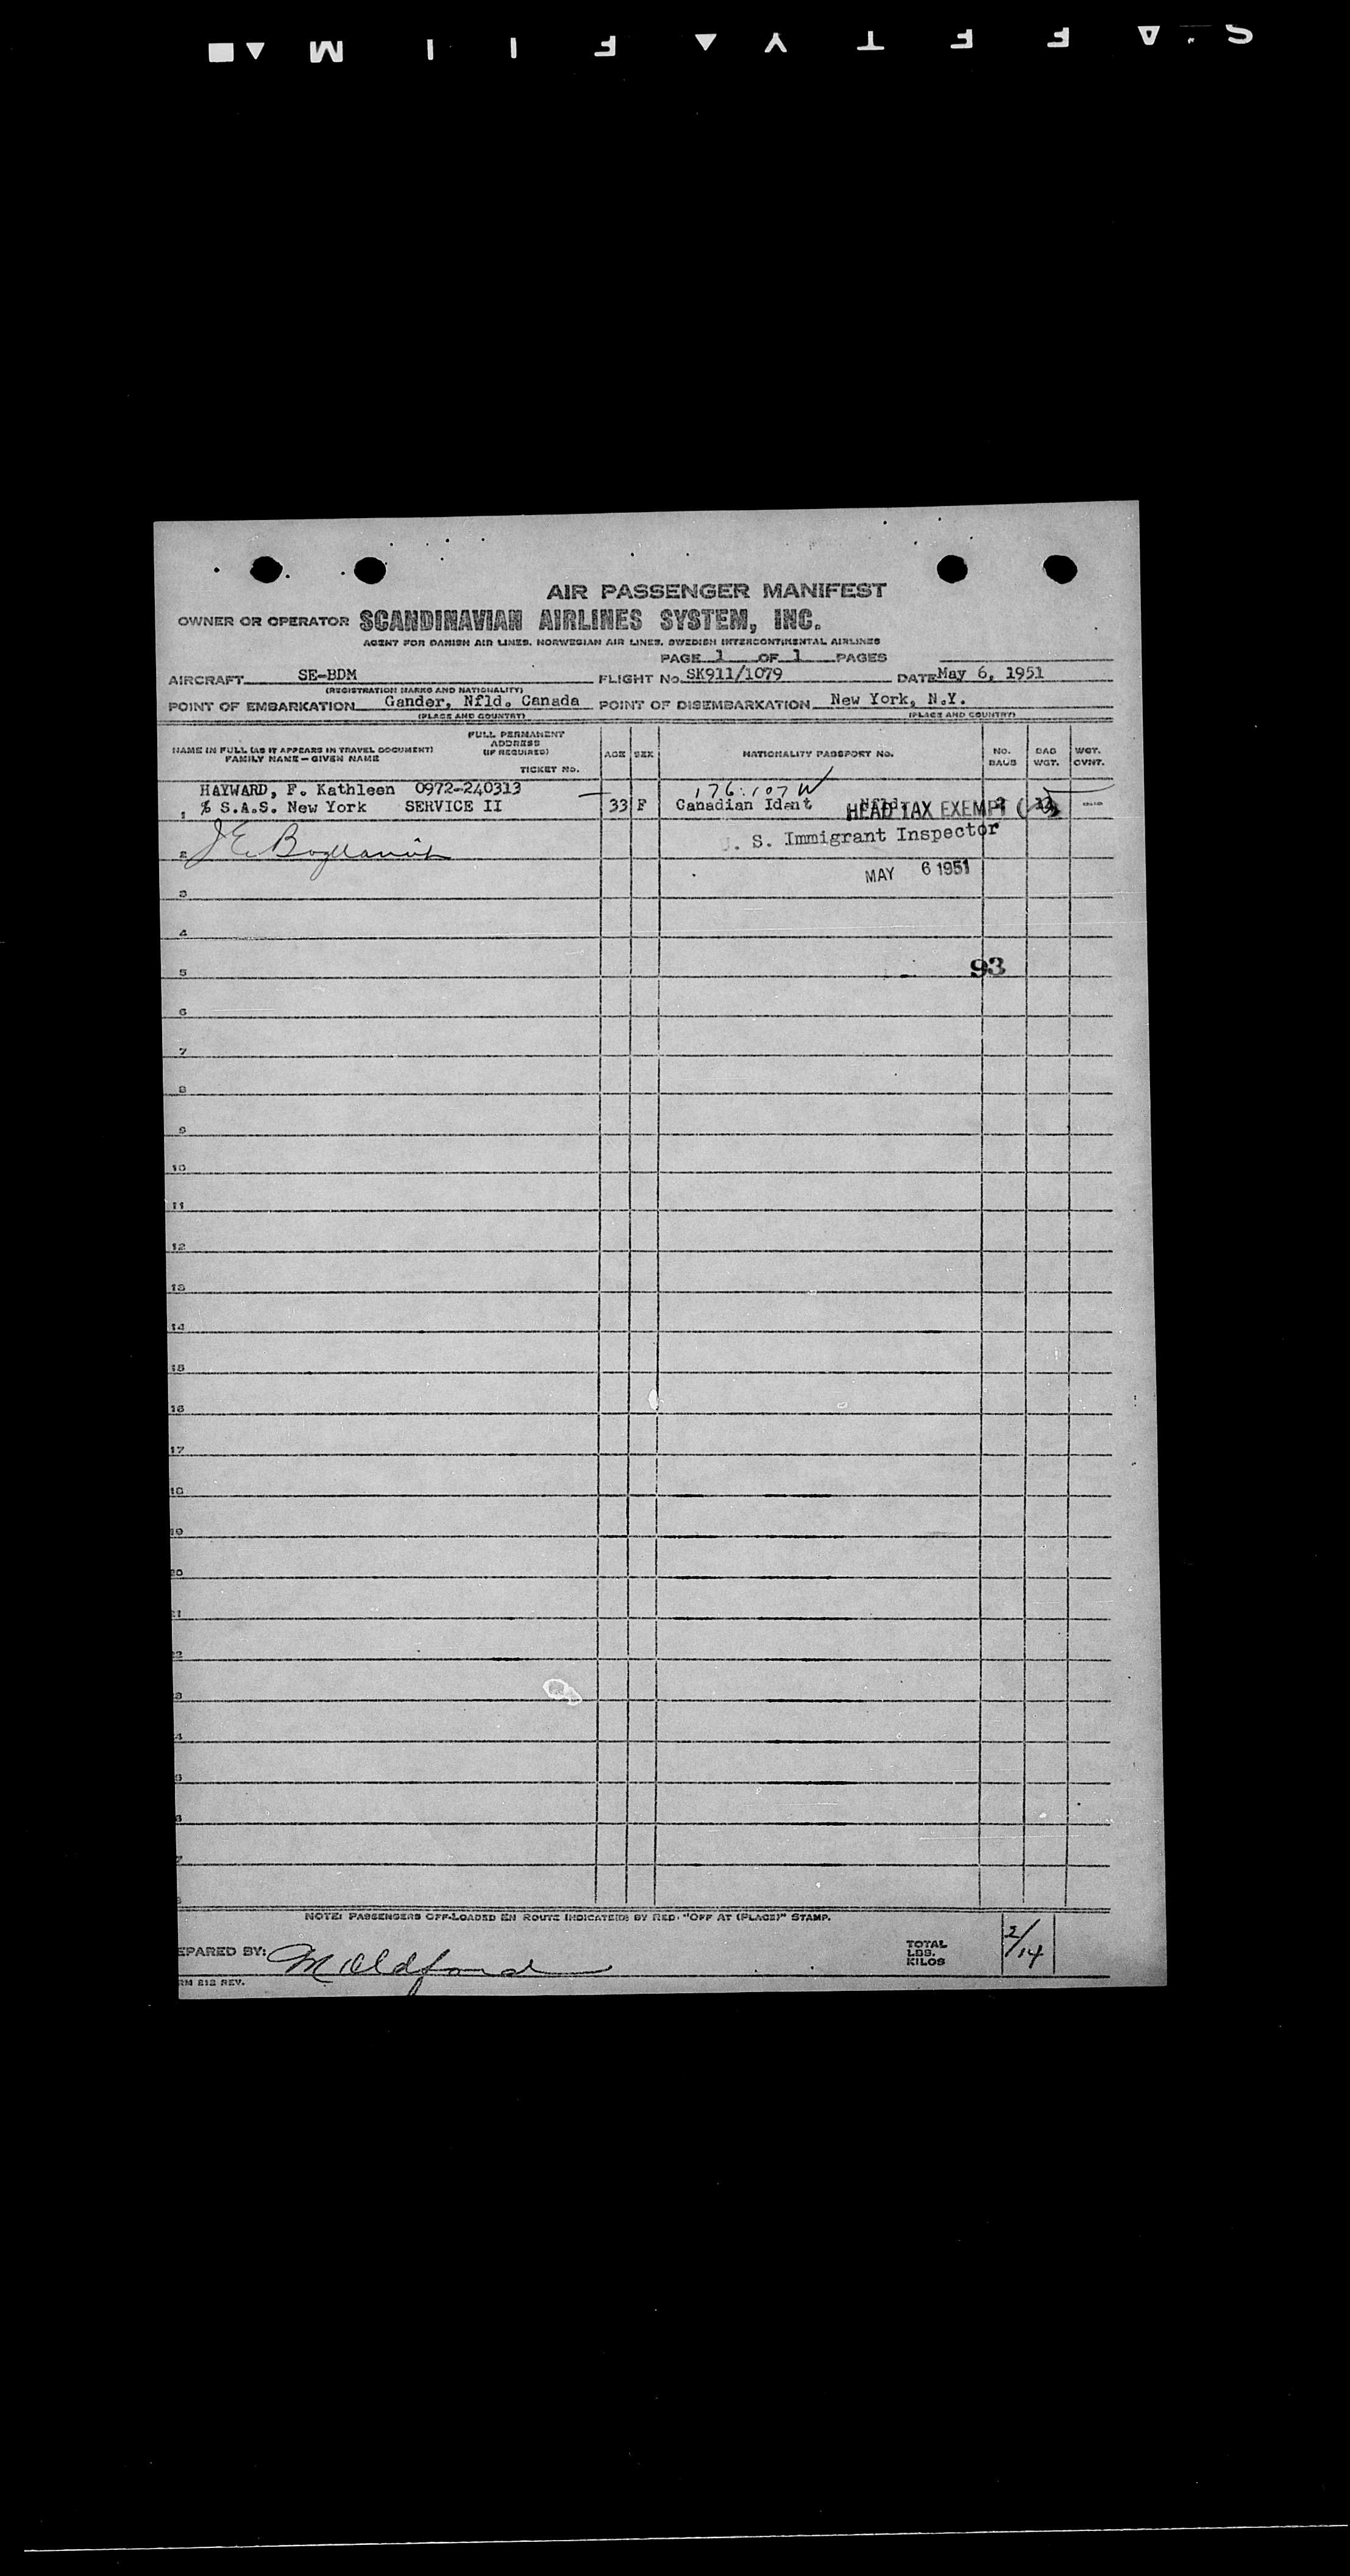 SAFETY FILM
AIR PASSENGER MANIFEST
OWNER OR OPERATOR SCANDINAVIAN AIRLINES SYSTEM, INC.
AGENT FOR DANISH AIR LINES, NORWEGIAN AIR LINES, SWEDISH INTERCONTINENTAL AIRLINES
PAGE 1 OF 1 PAGES
AIRCRAFT SE-BDM FLIGHT No. SK911/1079 DATE May 6, 1951
(REGISTRATION MARKS AND NATIONALITY)
POINT OF EMBARKATION Gander, Nfld. Canada POINT OF DISEMBARKATION New York, N.Y.
(PLACE AND COUNTRY) (PLACE AND COUNTRY)
NAME IN FULL (AS IT APPEARS IN TRAVEL DOCUMENT)
FAMILY NAME – GIVEN NAME
FULL PERMANENT
ADDRESS
(IF REQUIRED)
TICKET No.
AGE SEX NATIONALITY PASSPORT NO. NO. BAGS BAG WGT. WGT. CVNT.
HAYWARD, F. Kathleen 0972-240313 176:107 W
1 % S.A.S. New York SERVICE II 33 F Canadian Ident Nfld. HEAD TAX EXEMPT 2
2 U. S. Immigrant Inspector
MAY 6 1951
3
4
5 93
6
7
8
9
10
11
12
13
14
15
16
17
18
19
20
21
22
NOTE: PASSENGERS OFF-LOADED EN ROUTE INDICATED BY RED "OFF AT (PLACE)" STAMP.
EPARED BY: M Oldford TOTAL
LBS.
KILOS
2/14
RM 212 REV.